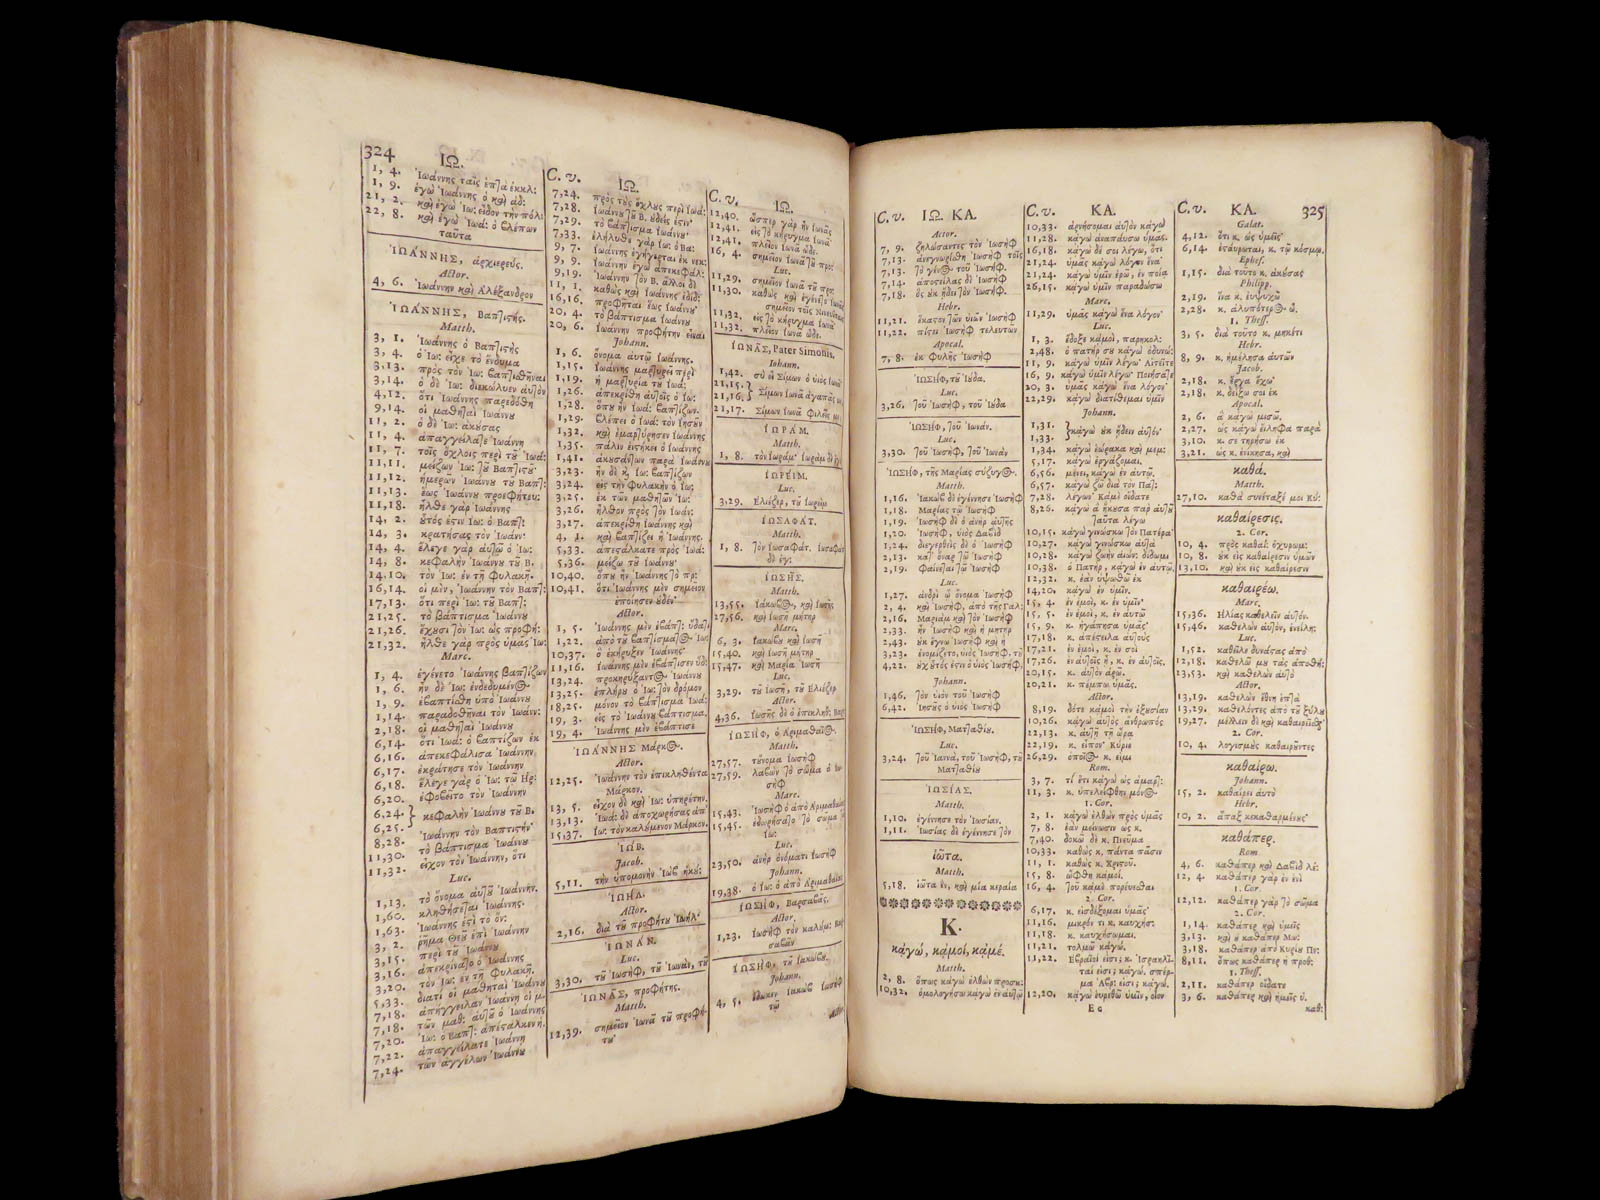 324
ΙΩ.
1, 4. Ἰωάννης ταῖς ἑπτὰ ἐκκλ:
1, 9. ἐγὼ Ἰωάννης ὁ καὶ ἀδ:
21, 2. καὶ ἐγὼ Ἰω: εἶδον τὴν πόλ:
22, 8. καὶ ἐγὼ Ἰωά: ὁ βλέπων
ταῦτα
ἸΩΆΝΝΗΣ, ἀρχιερεύς.
Actor.
4, 6. Ἰωάννην καὶ Ἀλέξανδρον
ἸΩΆΝΝΗΣ, Βαπτιστής.
Matth.
3, 1. Ἰωάννης ὁ Βαπτιστὴς
3, 4. ὁ Ἰω: εἶχε τὸ ἔνδυμα
3,13. πρὸς τὸν Ἰω: βαπτισθῆναι
3,14. ὁ δὲ Ἰω: διεκώλυεν αὐτὸν
4,12. ὅτι Ἰωάννης παρεδόθη
9,14. οἱ μαθηταὶ Ἰωάννου
11, 2. ὁ δὲ Ἰω: ἀκούσας
11, 4. ἀπαγγείλατε Ἰωάννῃ
11, 7. τοῖς ὄχλοις περὶ τοῦ Ἰωά:
11,11. μείζων Ἰω: τοῦ Βαπτιστοῦ
11,12. ἡμερῶν Ἰωάννου τοῦ Βαπτ:
11,13. ἕως Ἰωάννου προεφήτευ:
11,18. ἦλθε γὰρ Ἰωάννης
14, 2. οὗτός ἐστιν Ἰω: ὁ Βαπτ:
14, 3. κρατήσας τὸν Ἰωάνν:
14, 4. ἔλεγε γὰρ αὐτῷ ὁ Ἰω:
14, 8. κεφαλὴν Ἰωάννου τοῦ Β.
14,10. τὸν Ἰω: ἐν τῇ φυλακῇ.
16,14. οἱ μὲν, Ἰωάννην τὸν Βαπτ:
17,13. ὅτι περὶ Ἰω: τοῦ Βαπτ:
21,25. τὸ βάπτισμα Ἰωάννου
21,26. ἔχουσι τὸν Ἰω: ὡς προφή:
21,32. ἦλθε γὰρ πρὸς ὑμᾶς Ἰω:
Marc.
1, 4. ἐγένετο Ἰωάννης βαπτίζων
1, 6. ἦν δὲ Ἰω: ἐνδεδυμένος
1, 9. ἐβαπτίσθη ὑπὸ Ἰωάννου
1,14. παραδοθῆναι τὸν Ἰωάνν:
2,18. οἱ μαθηταὶ Ἰωάννου
6,14. ὅτι Ἰωά: ὁ βαπτίζων ἐκ
6,16. ἀπεκεφάλισα Ἰωάννην
6,17. ἐκράτησε τὸν Ἰωάννην
6,18. ἔλεγε γὰρ ὁ Ἰω: τῷ Ηρ:
6,20. ἐφοβεῖτο τὸν Ἰωάννην
6,24. } κεφαλὴν Ἰωάννου τοῦ Β.
6,25.
8,28. Ἰωάννην τὸν Βαπτιστήν
11,30. τὸ βάπτισμα Ἰωάννου
11,32. εἶχον τὸν Ἰωάννην, ὅτι
Luc.
1,13. τὸ ὄνομα αὐτοῦ Ἰωάννην.
1,60. κληθήσεται Ἰωάννης.
1,63. Ἰωάννης ἐστὶ τὸ ὄν:
3, 2. ῥῆμα Θεοῦ ἐπὶ Ἰωάννην
3,15. περὶ τοῦ Ἰωάννου
3,16. ἀπεκρίνατο ὁ Ἰωάννης
3,20. τὸν Ἰω: ἐν τῇ Φυλακῇ.
5,33. διατί οἱ μαθηταὶ Ἰωάννου
7,18. ἀπήγγειλαν Ἰωάννῃ οἱ μ.
7,18. τῶν μαθ: αὐτοῦ ὁ Ἰωάννης
7,20. Ἰω: ὁ Βαπτ: ἀπέσταλκεν ἡ.
7,22. ἀπαγγείλατε Ἰωάννῃ
7,24. τῶν ἀγγέλων Ἰωάννου
C. v. ΙΩ.
7,24. πρὸς τοὺς ὄχλους περὶ Ἰωά:
7,28. Ἰωάννου τοῦ Β. οὐδείς ἐστιν
7,29. τὸ βάπτισμα Ἰωάννου
7,33. ἐλήλυθε γὰρ Ἰω: ὁ Βα:
9, 7. Ἰωάννης ἐγήγερται ἐκ νεκ:
9, 9. Ἰωάννην ἐγὼ ἀπεκεφάλ:
9,19. Ἰωάννην τὸν Β. ἄλλοι δὲ
11, 1. καθὼς καὶ Ἰωάννης ἐδίδ:
16,16. προφῆται ἕως Ἰωάννου
20, 4. τὸ βάπτισμα Ἰωάννου
20, 6. Ἰωάννην προφήτην εἶναι
Johann.
1, 6. ὄνομα αὐτῷ Ἰωάννης.
1,15. Ἰωάννης μαρτυρεῖ περὶ
1,19. ἡ μαρτυρία τοῦ Ἰωά:
1,26. ἀπεκρίθη αὐτοῖς ὁ Ἰω:
1,28. ὅπου ἦν Ἰωά: βαπτίζων.
1,29. βλέπει ὁ Ἰωά: τὸν Ἰησοῦν
1,32. καὶ ἐμαρτύρησεν Ἰωάννης
1,35. πάλιν εἱστήκει ὁ Ἰωάννης
1,41. ἀκουσάντων παρὰ Ἰωάννου
3,23. ἦν δὲ κ, Ἰω: βαπτίζων
3,24. εἰς τὴν φυλακὴν ὁ Ἰω:
3,25. ἐκ τῶν μαθητῶν Ἰω:
3,26. ἦλθον πρὸς τὸν Ἰωάν:
3,27. ἀπεκρίθη Ἰωάννης καὶ
4, 1. καὶ βαπτίζει ἢ Ἰωάννης.
5,33. ἀπεστάλκατε πρὸς Ἰωά:
5,36. μείζω τοῦ Ἰωάννου
10,40. ὅπου ἦν Ἰωάννης τὸ πρ:
10,41. ὅτι Ἰωάννης μὲν σημεῖον
ἐποίησεν οὐδέν
Actor.
1, 5. Ἰωάννης μὲν ἐβάπτ: ὕδατι
1,22. ἀπὸ τοῦ βαπτίσματος Ἰω:
10,37. ὃ ἐκήρυξεν Ἰωάννης
11,16. Ἰωάννης μὲν ἐβάπτισεν ὕδ:
13,24. προκηρύξαντος Ἰωάννου
13,25. ἐπλήρου ὁ Ἰω: τὸν δρόμον
18,25. μόνον τὸ βάπτισμα Ἰωά:
19, 3. εἰς τὸ Ἰωάννου βάπτισμα.
19, 4. Ἰωάννης μὲν ἐβάπτισε
ἸΩΆΝΝΗΣ Μάρκος.
Actor.
12,25. Ἰωάννην τὸν ἐπικληθέντα
Μάρκον.
13, 5. εἶχον δὲ καὶ Ἰω: ὑπηρέτην.
13,13. Ἰωά: δὲ ἀποχωρήσας ἀπ'
15,37. Ἰω: τὸν καλούμενον Μάρκον.
ἸΏΒ.
Jacob.
5,11. τὴν ὑπομονὴν Ἰὼβ ἠκού:
ἸΩΉΛ.
Actor.
2,16. διὰ τοῦ προφήτου Ἰωήλ
ἸΩΝΆΝ.
Luc.
3,30. τοῦ Ἰωσὴφ, τοῦ Ἰωνὰν, τοῦ
ἸΩΝΑ͂Σ, προφήτης.
Matth.
12,39. σημεῖον Ἰωνᾶ τοῦ προφή-
του
C. v. ΙΩ.
12,40. ὥσπερ γὰρ ἦν Ἰωνᾶς
12,41. εἰς τὸ κήρυγμα Ἰωνᾶ
12,41. πλεῖον Ἰωνᾶ ὧδε.
16, 4. σημεῖον Ἰωνᾶ τοῦ προ:
Luc.
11,29. σημεῖον Ἰωνᾶ τοῦ προ:
11,30. καθὼς καὶ ἐγένετο Ἰωνᾶς
σημεῖον τοῖς Νινευίταις
11,32. εἰς τὸ κήρυγμα Ἰωνᾶ
11,32. πλεῖον Ἰωνᾶ ὧδε.
ἸΩΝΑ͂Σ, Pater Simonis.
Iohann.
1,42. σὺ εἶ Σίμων ὁ υἱὸς Ἰωνᾶ
21,15. } Σίμων Ἰωνᾶ ἀγαπᾷς με
21,16.
21,17. Σίμων Ἰωνᾶ φιλεῖς με;
ἸΩΡΆΜ.
Matth.
1, 8. τὸν Ἰωράμ· Ἰωρὰμ δὲ ἐγ:
ἸΩΡΕΊΜ.
Luc.
3,29. Ἐλιέζερ, τοῦ Ἰωρεὶμ
ἸΩΣΑΦΆΤ.
Matth.
1, 8. τὸν Ἰωσαφάτ. Ἰωσαφὰτ
δὲ ἐγ:
ἸΩΣΗ͂Σ.
Matth.
13,55. Ἰάκωβος, καὶ Ἰωσῆς
27,56. καὶ Ἰωσῆ μήτηρ
Marc.
6, 3. Ἰακώβου καὶ Ἰωσῆ
15,40. καὶ Ἰωσῆ μήτηρ
15,47. καὶ Μαρία Ἰωσῆ
Luc.
3,29. τοῦ Ἰωσῆ, τοῦ Ἐλιέζερ
Actor.
4,36. Ἰωσῆς δὲ ὁ ἐπικληθ: Βαρ:
ἸΩΣΉΦ, ὁ Ἀριμαθαῖος.
Matth.
27,57. τοὔνομα Ἰωσὴφ
27,59. λαβὼν τὸ σῶμα ὁ Ἰω-
σὴφ
Marc.
15,43. Ἰωσὴφ ὁ ἀπὸ Ἀριμαθαίας
15,45. ἐδωρήσατο τὸ σῶμα τῷ
Ἰω:
Luc.
23,50. ἀνὴρ ὀνόματι Ἰωσὴφ
Johann.
19,38. ὁ Ἰω: ὁ ἀπὸ Ἀριμαθαίας
ἸΩΣΉΦ, Βαρσαβᾶς.
Actor.
1,23. Ἰωσὴφ τὸν καλούμ: Βαρ-
σαβᾶν
ἸΩΣΉΦ, τοῦ Ἰακώβου.
Johann.
4, 5. ἔδωκεν Ἰακὼβ Ἰωσὴφ
τῷ
Actor.
C. v. ΙΩ. ΚΑ.
Actor.
7, 9. ζηλώσαντες τὸν Ἰωσὴφ
7,13. ἀνεγνωρίσθη Ἰωσὴφ τοῖς
7,13. τὸ γένος τοῦ Ἰωσήφ.
7,14. ἀποστείλας δὲ Ἰωσὴφ
7,18. ὃς οὐκ ᾔδει τὸν Ἰωσήφ.
Hebr.
11,21. ἕκαστον τῶν υἱῶν Ἰωσὴφ
11,22. πίστει Ἰωσὴφ τελευτῶν
Apocal.
7, 8. ἐκ Φυλῆς Ἰωσὴφ
ἸΩΣΉΦ, τοῦ Ἰούδα.
Luc.
3,26. τοῦ Ἰωσὴφ, τοῦ Ἰούδα
ἸΩΣΉΦ, τοῦ Ἰωνάν.
Luc.
3,30. τοῦ Ἰωσὴφ, τοῦ Ἰωνὰν
ἸΩΣΉΦ, τῆς Μαρίας σύζυγος.
Matth.
1,16. Ἰακὼβ δὲ ἐγέννησε Ἰωσὴφ
1,18. Μαρίας τῷ Ἰωσὴφ
1,19. Ἰωσὴφ δὲ ὁ ἀνὴρ αὐτῆς
1,20. Ἰωσὴφ, υἱὸς Δαβὶδ
1,24. διεγερθεὶς δὲ ὁ Ἰωσὴφ
2,13. κατ' ὄναρ τῷ Ἰωσὴφ
2,19. Φαίνεται τῷ Ἰωσὴφ
Luc.
1,27. ἀνδρὶ ᾧ ὄνομα Ἰωσὴφ
2, 4. καὶ Ἰωσὴφ, ἀπὸ τῆς Γαλ:
2,16. Μαριὰμ καὶ τὸν Ἰωσὴφ
2,33. ἦν Ἰωσὴφ καὶ ἡ μήτηρ
2,43. οὐκ ἔγνω Ἰωσὴφ καὶ ἡ
3,23. ἐνομίζετο, υἱὸς Ἰωσὴφ, τοῦ
4,22. οὐχ οὗτός ἐστιν ὁ υἱὸς Ἰωσὴφ;
Johann.
1,46. τὸν υἱὸν τοῦ Ἰωσὴφ
6,42. Ἰησοῦς ὁ υἱὸς Ἰωσὴφ
ἸΩΣΉΦ, Ματταθίου.
Luc.
3,24. τοῦ Ἰαννὰ, τοῦ Ἰωσὴφ, τοῦ
Ματταθίου
ἸΩΣΊΑΣ.
Matth.
1,10. ἐγέννησε τὸν Ἰωσίαν.
1,11. Ἰωσίας δὲ ἐγέννησε τὸν
ἰῶτα.
Matth.
5,18. ἰῶτα ἓν, καὶ μία κεραία
Κ.
κἀγώ, κἀμοί, κἀμέ.
Matth.
2, 8. ὅπως κἀγὼ ἐλθὼν προσκ:
10,32. ὁμολογήσω κἀγὼ ἐν αὐτῷ
C. v. ΚΑ.
10,33. ἀρνήσομαι αὐτὸν κἀγὼ
11,28. κἀγὼ ἀναπαύσω ὑμᾶς.
16,18. κἀγὼ δέ σοι λέγω, ὅτι
21,24. ὑμᾶς κἀγὼ λόγον ἕνα
21,24. κἀγὼ ὑμῖν ἐρῶ, ἐν ποίᾳ
26,15. κἀγὼ ὑμῖν παραδώσω
Marc.
11,29. ὑμᾶς κἀγὼ ἕνα λόγον
Luc.
1, 3. ἔδοξε κἀμοὶ, παρηκολ:
2,48. ὁ πατήρ σου κἀγὼ ὀδυνώ:
11, 9. κἀγὼ ὑμῖν λέγω· Αἰτεῖτε
16, 9. κἀγὼ ὑμῖν λέγω· Ποιήσατε
20, 3. ὑμᾶς κἀγὼ ἕνα λόγον
22,29. κἀγὼ διατίθεμαι ὑμῖν
Johann.
1,31. } κἀγὼ οὐκ ᾔδειν αὐτόν
1,33.
1,34. κἀγὼ ἑώρακα καὶ μεμ:
5,17. κἀγὼ ἐργάζομαι.
6,56. μένει, κἀγὼ ἐν αὐτῷ.
6,57. κἀγὼ ζῶ διὰ τὸν Πατ:
7,28. λέγων· Κἀμὲ οἴδατε
8,26. κἀγὼ ἃ ἤκουσα παρ' αὐτοῦ
ταῦτα λέγω
10,15. κἀγὼ γινώσκω τὸν Πατέρα
10,27. κἀγὼ γινώσκω αὐτὰ
10,28. κἀγὼ ζωὴν αἰών: δίδωμι
10,38. ὁ Πατὴρ, κἀγὼ ἐν αὐτῷ.
12,32. κ. ἐὰν ὑψωθῶ ἐκ
14,20. κἀγὼ ἐν ὑμῖν.
15, 4. ἐν ἐμοὶ, κ. ἐν ὑμῖν
15, 5. ἐν ἐμοὶ, κ. ἐν αὐτῷ
15, 9. κ. ἠγάπησα ὑμᾶς
17,18. κ. ἀπέστειλα αὐτοὺς
17,21. ἐν ἐμοὶ, κ. ἐν σοὶ
17,26. ἐν αὐτοῖς ᾖ, κ. ἐν αὐτοῖς.
20,15. κ. αὐτὸν ἀρῶ.
20,21. κ. πέμπω ὑμᾶς.
Actor.
8,19. δότε κἀμοὶ τὴν ἐξουσίαν
10,26. κἀγὼ αὐτὸς ἄνθρωπός
22,13. κ. αὐτῇ τῇ ὥρᾳ
22,19. κ. εἶπον· Κύριε
26,29. ὁποῖος κ. εἰμι
Rom.
3, 7. τί ἔτι κἀγὼ ὡς ἁμαρτ:
11, 3. κ. ὑπελείφθην μόνος
1. Cor.
2, 1. κἀγὼ ἐλθὼν πρὸς ὑμᾶς
7, 8. ἐὰν μείνωσιν ὡς κ.
7,40. δοκῶ δὲ κ. Πνεῦμα
10,33. καθὼς κ. πάντα πᾶσιν
11, 1. καθὼς κ. Χριστοῦ.
15, 8. ὤφθη κἀμοί.
16, 4. τοῦ κἀμὲ πορεύεσθαι
2. Cor.
6,17. κ. εἰσδέξομαι ὑμᾶς
11,16. μικρόν τι κ. καυχήσ:
11,18. κ. καυχήσομαι.
11,21. τολμῶ κἀγώ.
11,22. Ἑβραῖοί εἰσι; κ. Ἰσραηλῖ-
ταί εἰσι; κἀγώ. σπέρ-
μα Ἀβρ: εἰσι; κἀγώ.
12,20. κἀγὼ εὑρεθῶ ὑμῖν, οἷον
Ee
C. v. ΚΑ. 325
Galat.
4,12. ὅτι κ. ὡς ὑμεῖς
6,14. ἐσταύρωται, κ. τῷ κόσμῳ.
Ephes.
1,15. διὰ τοῦτο κ. ἀκούσας
Philipp.
2,19. ἵνα κ. εὐψυχῶ
2,28. κ. ἀλυπότερος ὦ.
1. Thess.
3, 5. διὰ τοῦτο κ. μηκέτι
Hebr.
8, 9. κ. ἠμέλησα αὐτῶν
Jacob.
2,18. κ. ἔργα ἔχω
2,18. κ. δείξω σοι ἐκ
Apocal.
2, 6. ἃ κἀγὼ μισῶ.
2,27. ὡς κἀγὼ εἴληφα παρὰ
3,10. κ. σε τηρήσω ἐκ
3,21. ὡς κ. ἐνίκησα, καὶ
καθά.
Matth.
27,10. καθὰ συνέταξέ μοι Κύ:
καθαίρεσις.
2. Cor.
10, 4. πρὸς καθαί: ὀχυρωμ:
10, 8. οὐκ εἰς καθαίρεσιν ὑμῶν
13,10. καὶ οὐκ εἰς καθαίρεσιν
καθαιρέω.
Marc.
15,36. Ἠλίας καθελεῖν αὐτόν.
15,46. καθελὼν αὐτὸν, ἐνείλη:
Luc.
1,52. καθεῖλε δυνάστας ἀπὸ
12,18. καθελῶ μου τὰς ἀποθή:
23,53. καὶ καθελὼν αὐτὸ
Actor.
13,19. καθελὼν ἔθνη ἑπτὰ
13,29. καθελόντες ἀπὸ τοῦ ξύλου
19,27. μέλλειν δὲ καὶ καθαιρεῖσθαι
2. Cor.
10, 4. λογισμοὺς καθαιροῦντες
καθαίρω.
Johann.
15, 2. καθαίρει αὐτὸ
Hebr.
10, 2. ἅπαξ κεκαθαρμένους
καθάπερ.
Rom.
4, 6. καθάπερ καὶ Δαβὶδ λέ:
12, 4. καθάπερ γὰρ ἐν ἑνὶ
1. Cor.
12,12. καθάπερ γὰρ τὸ σῶμα
2. Cor.
1,14. καθάπερ καὶ ὑμεῖς
3,13. καὶ οὐ καθάπερ Μω:
3,18. καθάπερ ἀπὸ Κυρίου Πν:
8,11. ὅπως καθάπερ ἡ προθ:
1. Thess.
2,11. καθάπερ οἴδατε
3, 6. καθάπερ καὶ ἡμεῖς ὑ.
καθ: